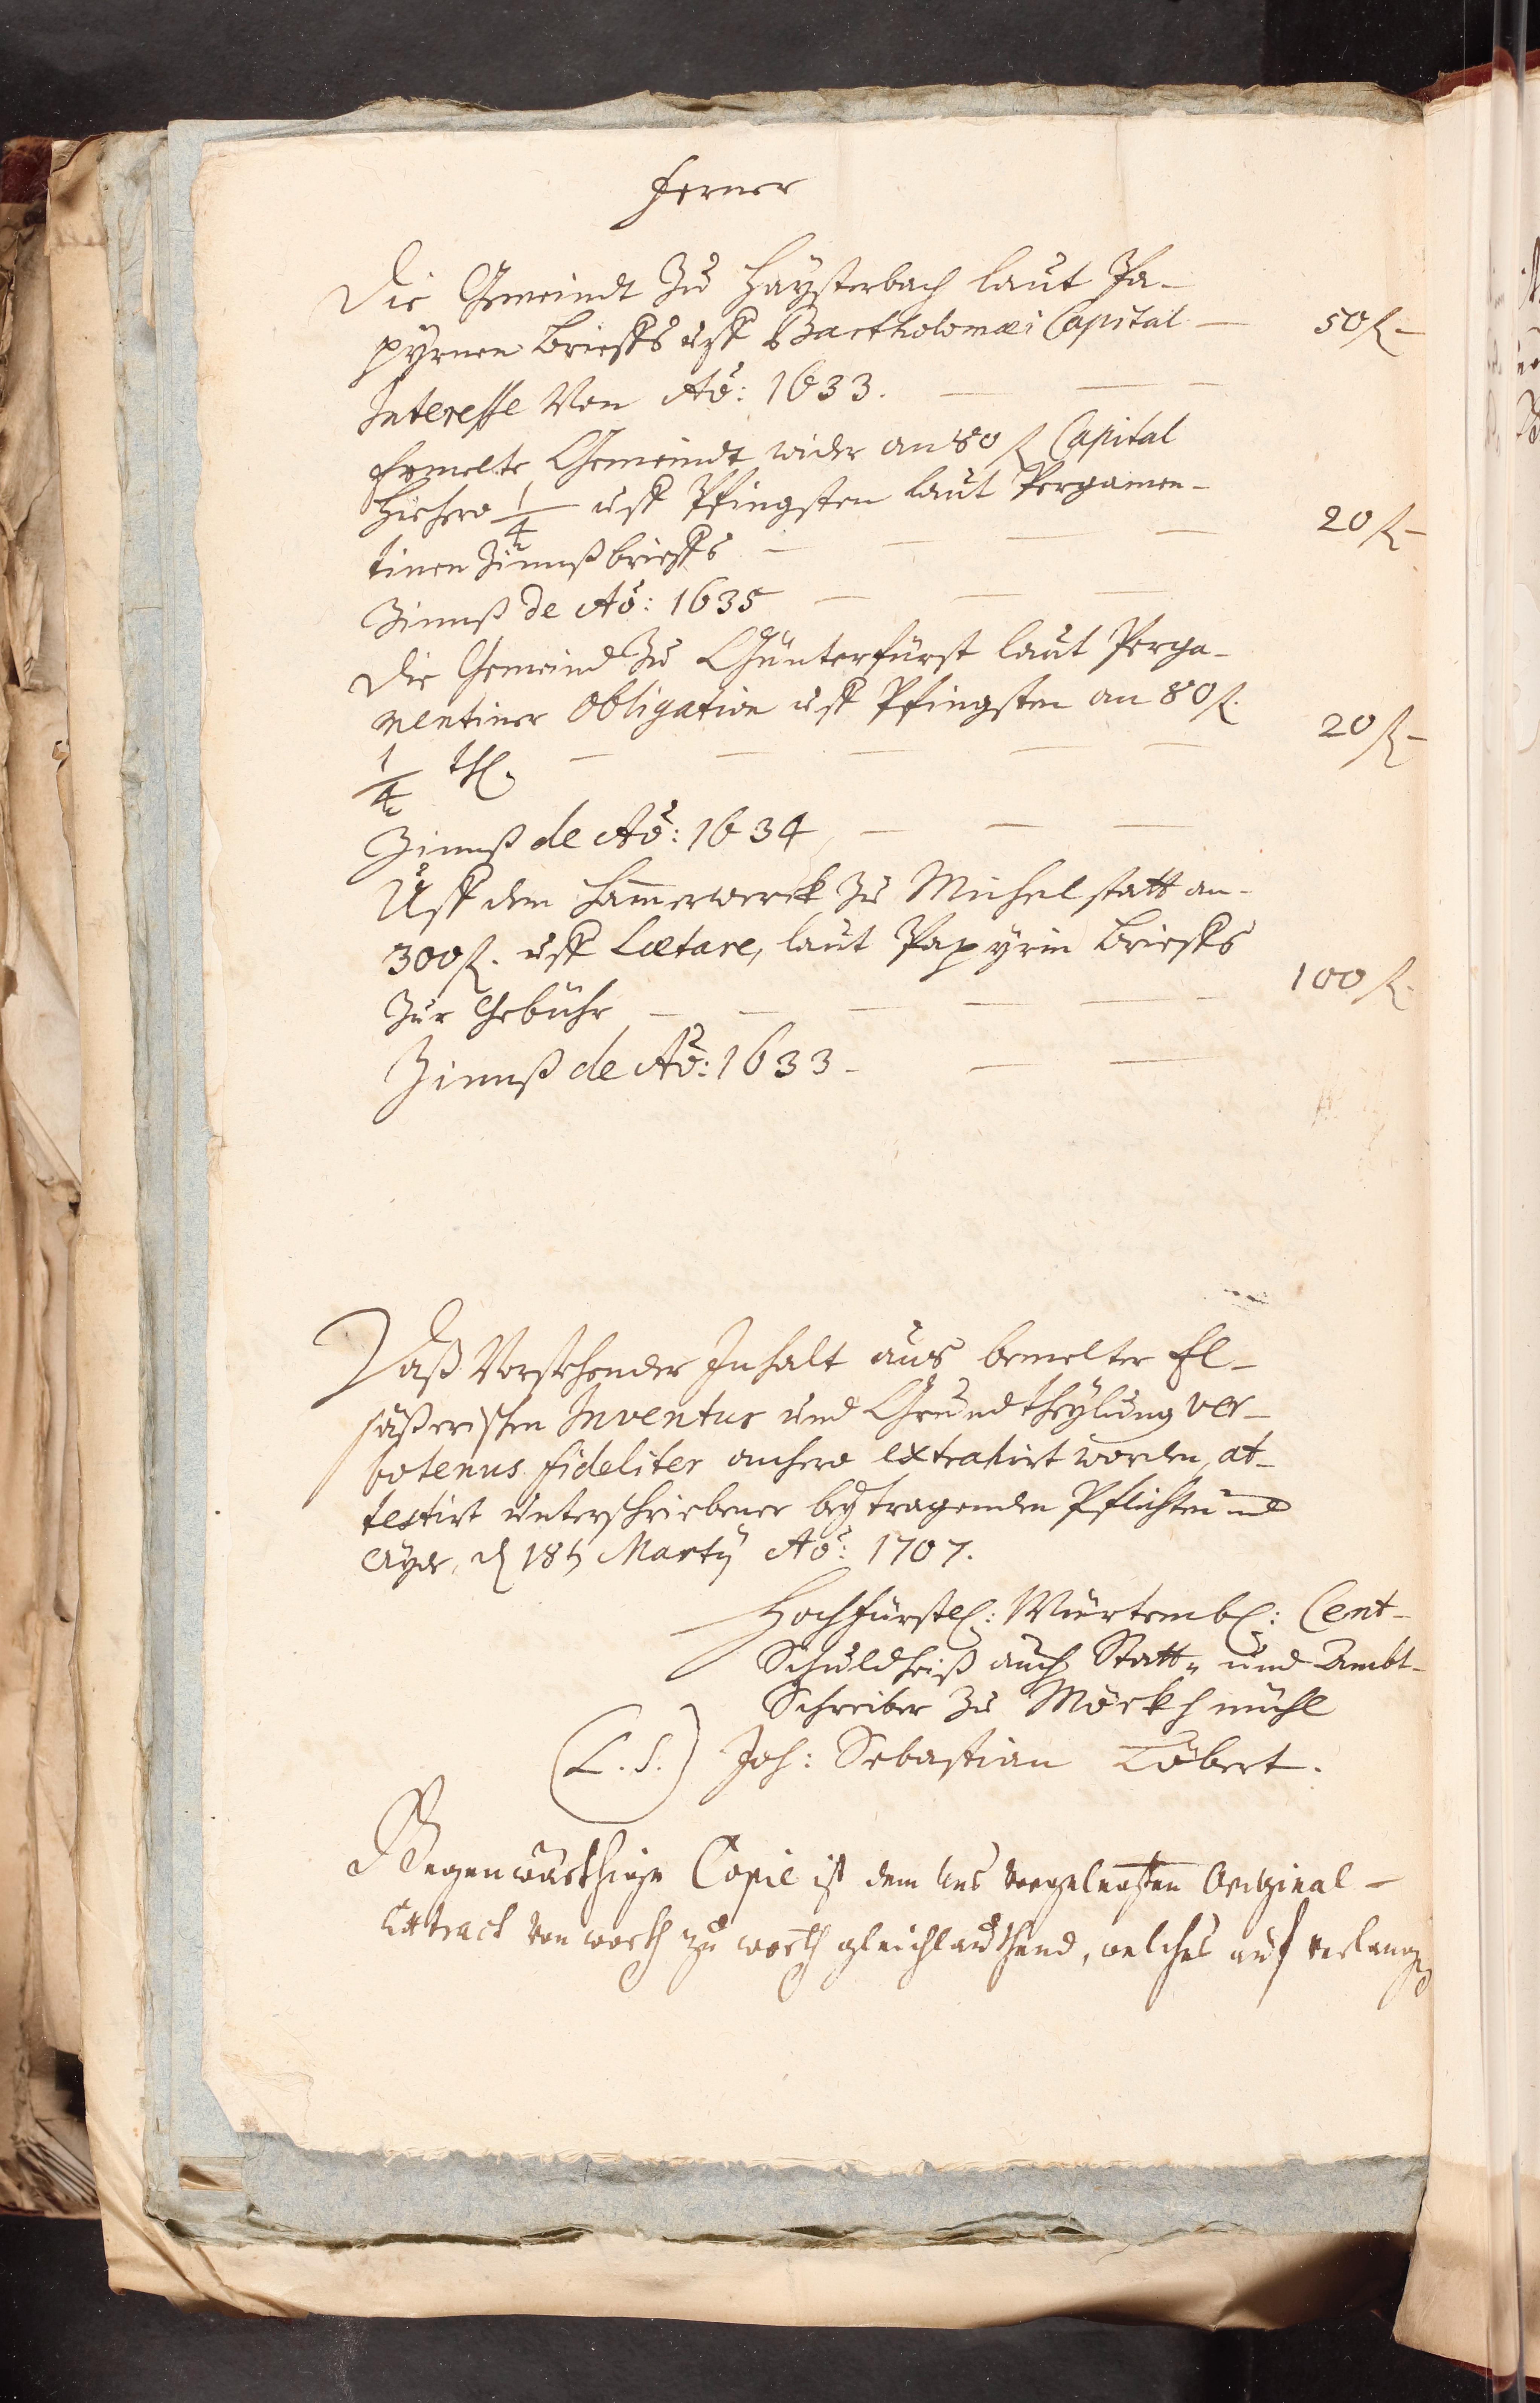 Ferner
Die Gemeindt Zu Haÿsterbach laut Pa-
pÿrnen brieffs uff Bartholomæi Capital — 50 fl —
Interesse Von Aõ: 1633. — — —
Ermelte Gemeindt wider an 80 fl Capital
hiehero 1/4 uff Pfingsten laut Pergamen-
tinen Zinnßbrieffs — — — — 20 fl —
Zinnß de Aõ: 1635 — — —
Die Gemeind Zu Günterfürst laut Perga-
mentiner Obligation uff Pfingsten an 80 fl.
1/4 thl. — — — — — 20 fl —
Zinnß de Aõ: 1634 — — —
Uff dem Hammerwerck Zu Michelstatt an-
300 fl. uff Lætare, laut Papÿrin brieffs
Zur Gebühr — — — — — — 100 fl.
Zinnß de Aõ: 1633 — — —
Daß Vorstehender Inhalt aus bemelter El-
säßerischen Inventur und Grundtheÿlung ver-
botenus fideliter anhero extrahirt worden, at-
testirt unterschriebener beÿ tragenden Pflichten und
Aÿde, d 18t Martÿ Aõ: 1707.
Hochfürstl: Würtembl: Cent-
Schuldheiß auch Statt- und Ambt-
Schreiber Zu Möckhmühl
(L. S.) Joh: Sebastian Löbert.
Gegenwärthige Copie ist dem Uns vorgelegten Original-
Extract von worth zu worth gleichlauthend, welches auf verlangen